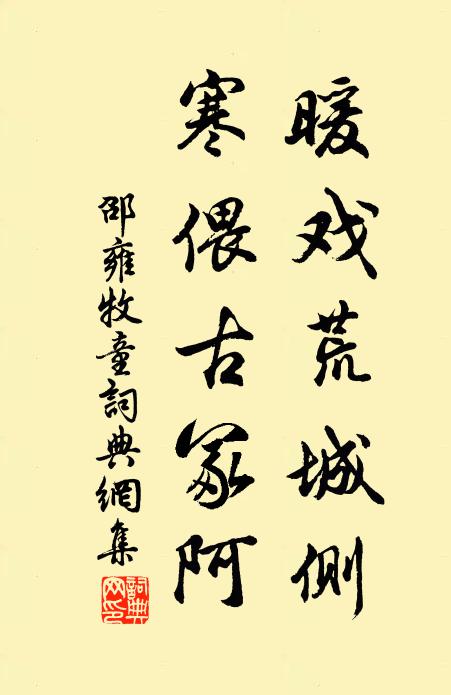 暖戏荒城侧
寒偎古冢阿
邵雍牧童詞典網集